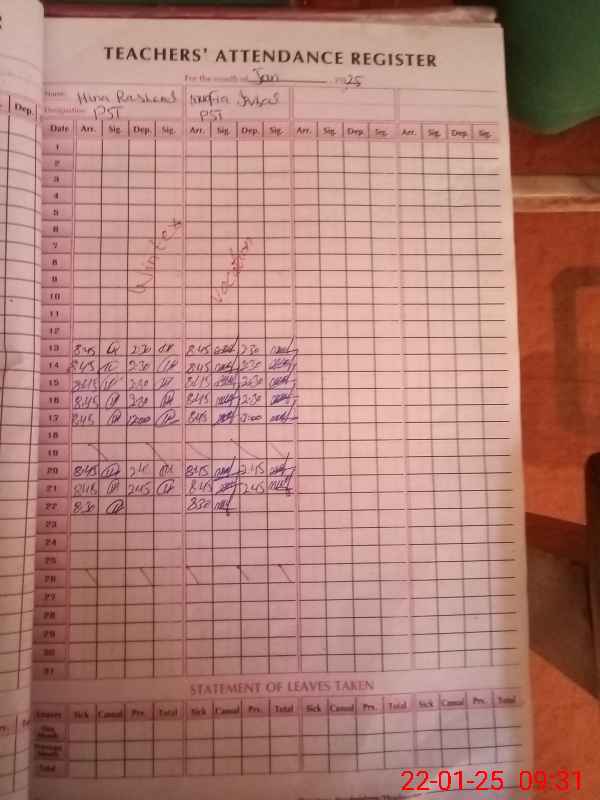 TEACHERS' ATTENDANCE REGISTER
For the month of Jan 2025
Name: Hina Rasheed
Designation PST PST
Date Arr. Sig. Dep. Sig. Arr. Sig. Dep. Sig. Arr. Sig. Dep. Sig. Arr. Sig. Dep. Sig.
Dep.
1
2
3
4
5
6
7
8
9
10
11
12
Winter vacation
13 8:45 2:30 8:45 2:30
14 8:45 2:30 8:45 2:30
15 8:45 2:30 8:45 2:30
16 8:45 2:30 8:45 2:30
17 8:45 12:00 8:45 12:00
18
19
20 8:45 2:45 8:45 2:45
21 8:45 2:45 8:45 2:45
22 8:30 8:30
23
24
25
26
27
28
29
30
31
STATEMENT OF LEAVES TAKEN
Leaves Sick Casual Prv. Total Sick Casual Prv. Total Sick Casual Prv. Total Sick Casual Prv. Total
This Month
Previous Month
Total
22-01-25 09:31